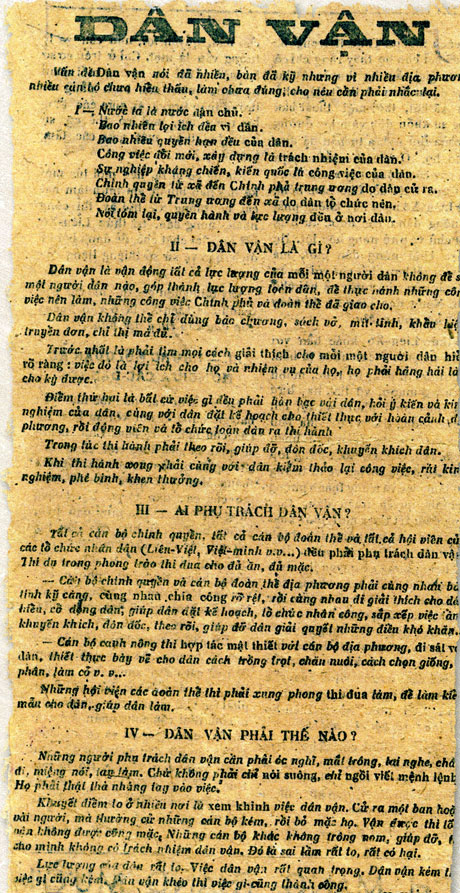 DÂN VẬN
Vấn đề Dân vận nói đã nhiều, bàn đã kỹ nhưng vì nhiều địa phươn
nhiều cán bộ chưa hiểu thấu, làm chưa đúng, cho nên cần phải nhắc lại.
I — Nước ta là nước dân chủ.
Bao nhiêu lợi ích đều vì dân.
Bao nhiêu quyền hạn đều của dân.
Công việc đổi mới, xây dựng là trách nhiệm của dân.
Sự nghiệp kháng chiến, kiến quốc là công việc của dân.
Chính quyền từ xã đến Chính phủ trung ương do dân cử ra.
Đoàn thể từ Trung ương đến xã do dân tổ chức nên.
Nói tóm lại, quyền hành và lực lượng đều ở nơi dân.
II — DÂN VẬN LÀ GÌ?
Dân vận là vận động tất cả lực lượng của mỗi một người dân không để s
một người dân nào, góp thành lực lượng toàn dân, để thực hành những cô
việc nên làm, những công việc Chính phủ và đoàn thể đã giao cho.
Dân vận không thể chỉ dùng báo chương, sách vở, mít-tinh, khẩu hiệ
truyền đơn, chỉ thị mà đủ.
Trước nhất là phải tìm mọi cách giải thích cho mỗi một người dân hiể
rõ ràng: việc đó là lợi ích cho họ và nhiệm vụ của họ, họ phải hăng hái là
cho kỳ được.
Điểm thứ hai là bất cứ việc gì đều phải bàn bạc với dân, hỏi ý kiến và kin
nghiệm của dân, cùng với dân đặt kế hoạch cho thiết thực với hoàn cảnh đ
phương, rồi động viên và tổ chức toàn dân ra thi hành
Trong lúc thi hành phải theo rõi, giúp đỡ, đôn đốc, khuyến khích dân.
Khi thi hành xong phải cùng với dân kiểm thảo lại công việc, rút kin
nghiệm, phê bình, khen thưởng.
III — AI PHỤ TRÁCH DÂN VẬN?
Tất cả cán bộ chính quyền, tất cả cán bộ đoàn thể và tất cả hội viên củ
các tổ chức nhân dân (Liên-Việt, Việt-minh v.v...) đều phải phụ trách dân vậ
Thí dụ trong phong trào thi đua cho đủ ăn, đủ mặc.
— Cán bộ chính quyền và cán bộ đoàn thể địa phương phải cùng nhau bà
tính kỹ càng, cùng nhau chia công rõ rệt, rồi cùng nhau đi giải thích cho dâ
hiểu, cổ động dân, giúp dân đặt kế hoạch, tổ chức nhân công, sắp xếp việc
khuyến khích, đôn đốc, theo rõi, giúp đỡ dân giải quyết những điều khó khăn.
— Cán bộ canh nông thì hợp tác mật thiết với cán bộ địa phương, đi sát v
dân, thiết thực bày vẽ cho dân cách trồng trọt, chăn nuôi, cách chọn giống,
phân, làm cỏ v. v...
Những hội viên các đoàn thể thì phải xung phong thi đua làm, để làm kiể
mẫu cho dân, giúp dân làm.
IV — DÂN VẬN PHẢI THẾ NÀO?
Những người phụ trách dân vận cần phải óc nghĩ, mắt trông, tai nghe, chân
đi, miệng nói, tay làm. Chứ không phải chỉ nói suông, chỉ ngồi viết mệnh lệnh
Họ phải thật thà nhúng tay vào việc.
Khuyết điểm to ở nhiều nơi là xem khinh việc dân vận. Cử ra một ban hoặ
vài người, mà thường cử những cán bộ kém, rồi bỏ mặc họ. Vận được thì tố
vận không được cũng mặc. Những cán bộ khác không trông nom, giúp đỡ, t
cho mình không có trách nhiệm dân vận. Đó là sai lầm rất to, rất có hại.
Lực lượng của dân rất to. Việc dân vận rất quan trọng. Dân vận kém th
việc gì cũng kém. Dân vận khéo thì việc gì cũng thành công.